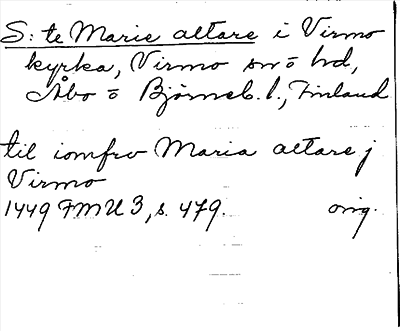 S:te Marie altare i Virmo
kyrka, Virmo sn o hd,
Åbo o Björneb. l., Finland
til iomfrv Maria altare j
Virmo
1449 FMU 3, s. 479. orig.